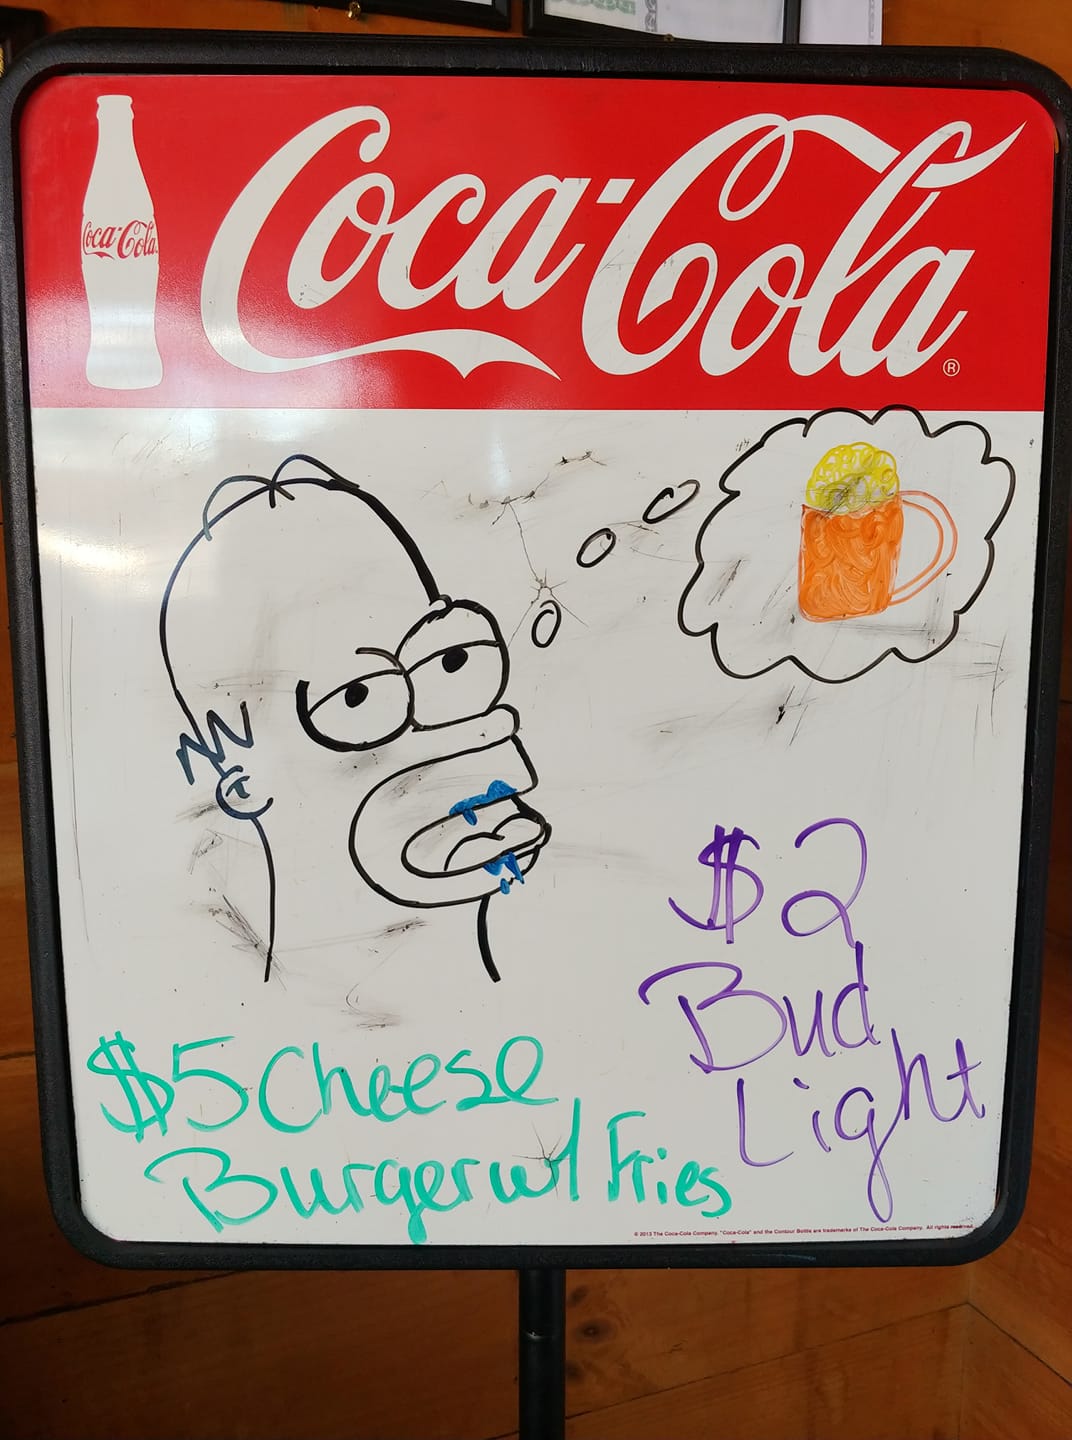 Coca-Cola
Coca-Cola®
$2
Bud
Light
$5 Cheese
Burger w/ Fries
© 2013 The Coca-Cola Company. "Coca-Cola" and the Contour Bottle are trademarks of The Coca-Cola Company. All rights reserved.